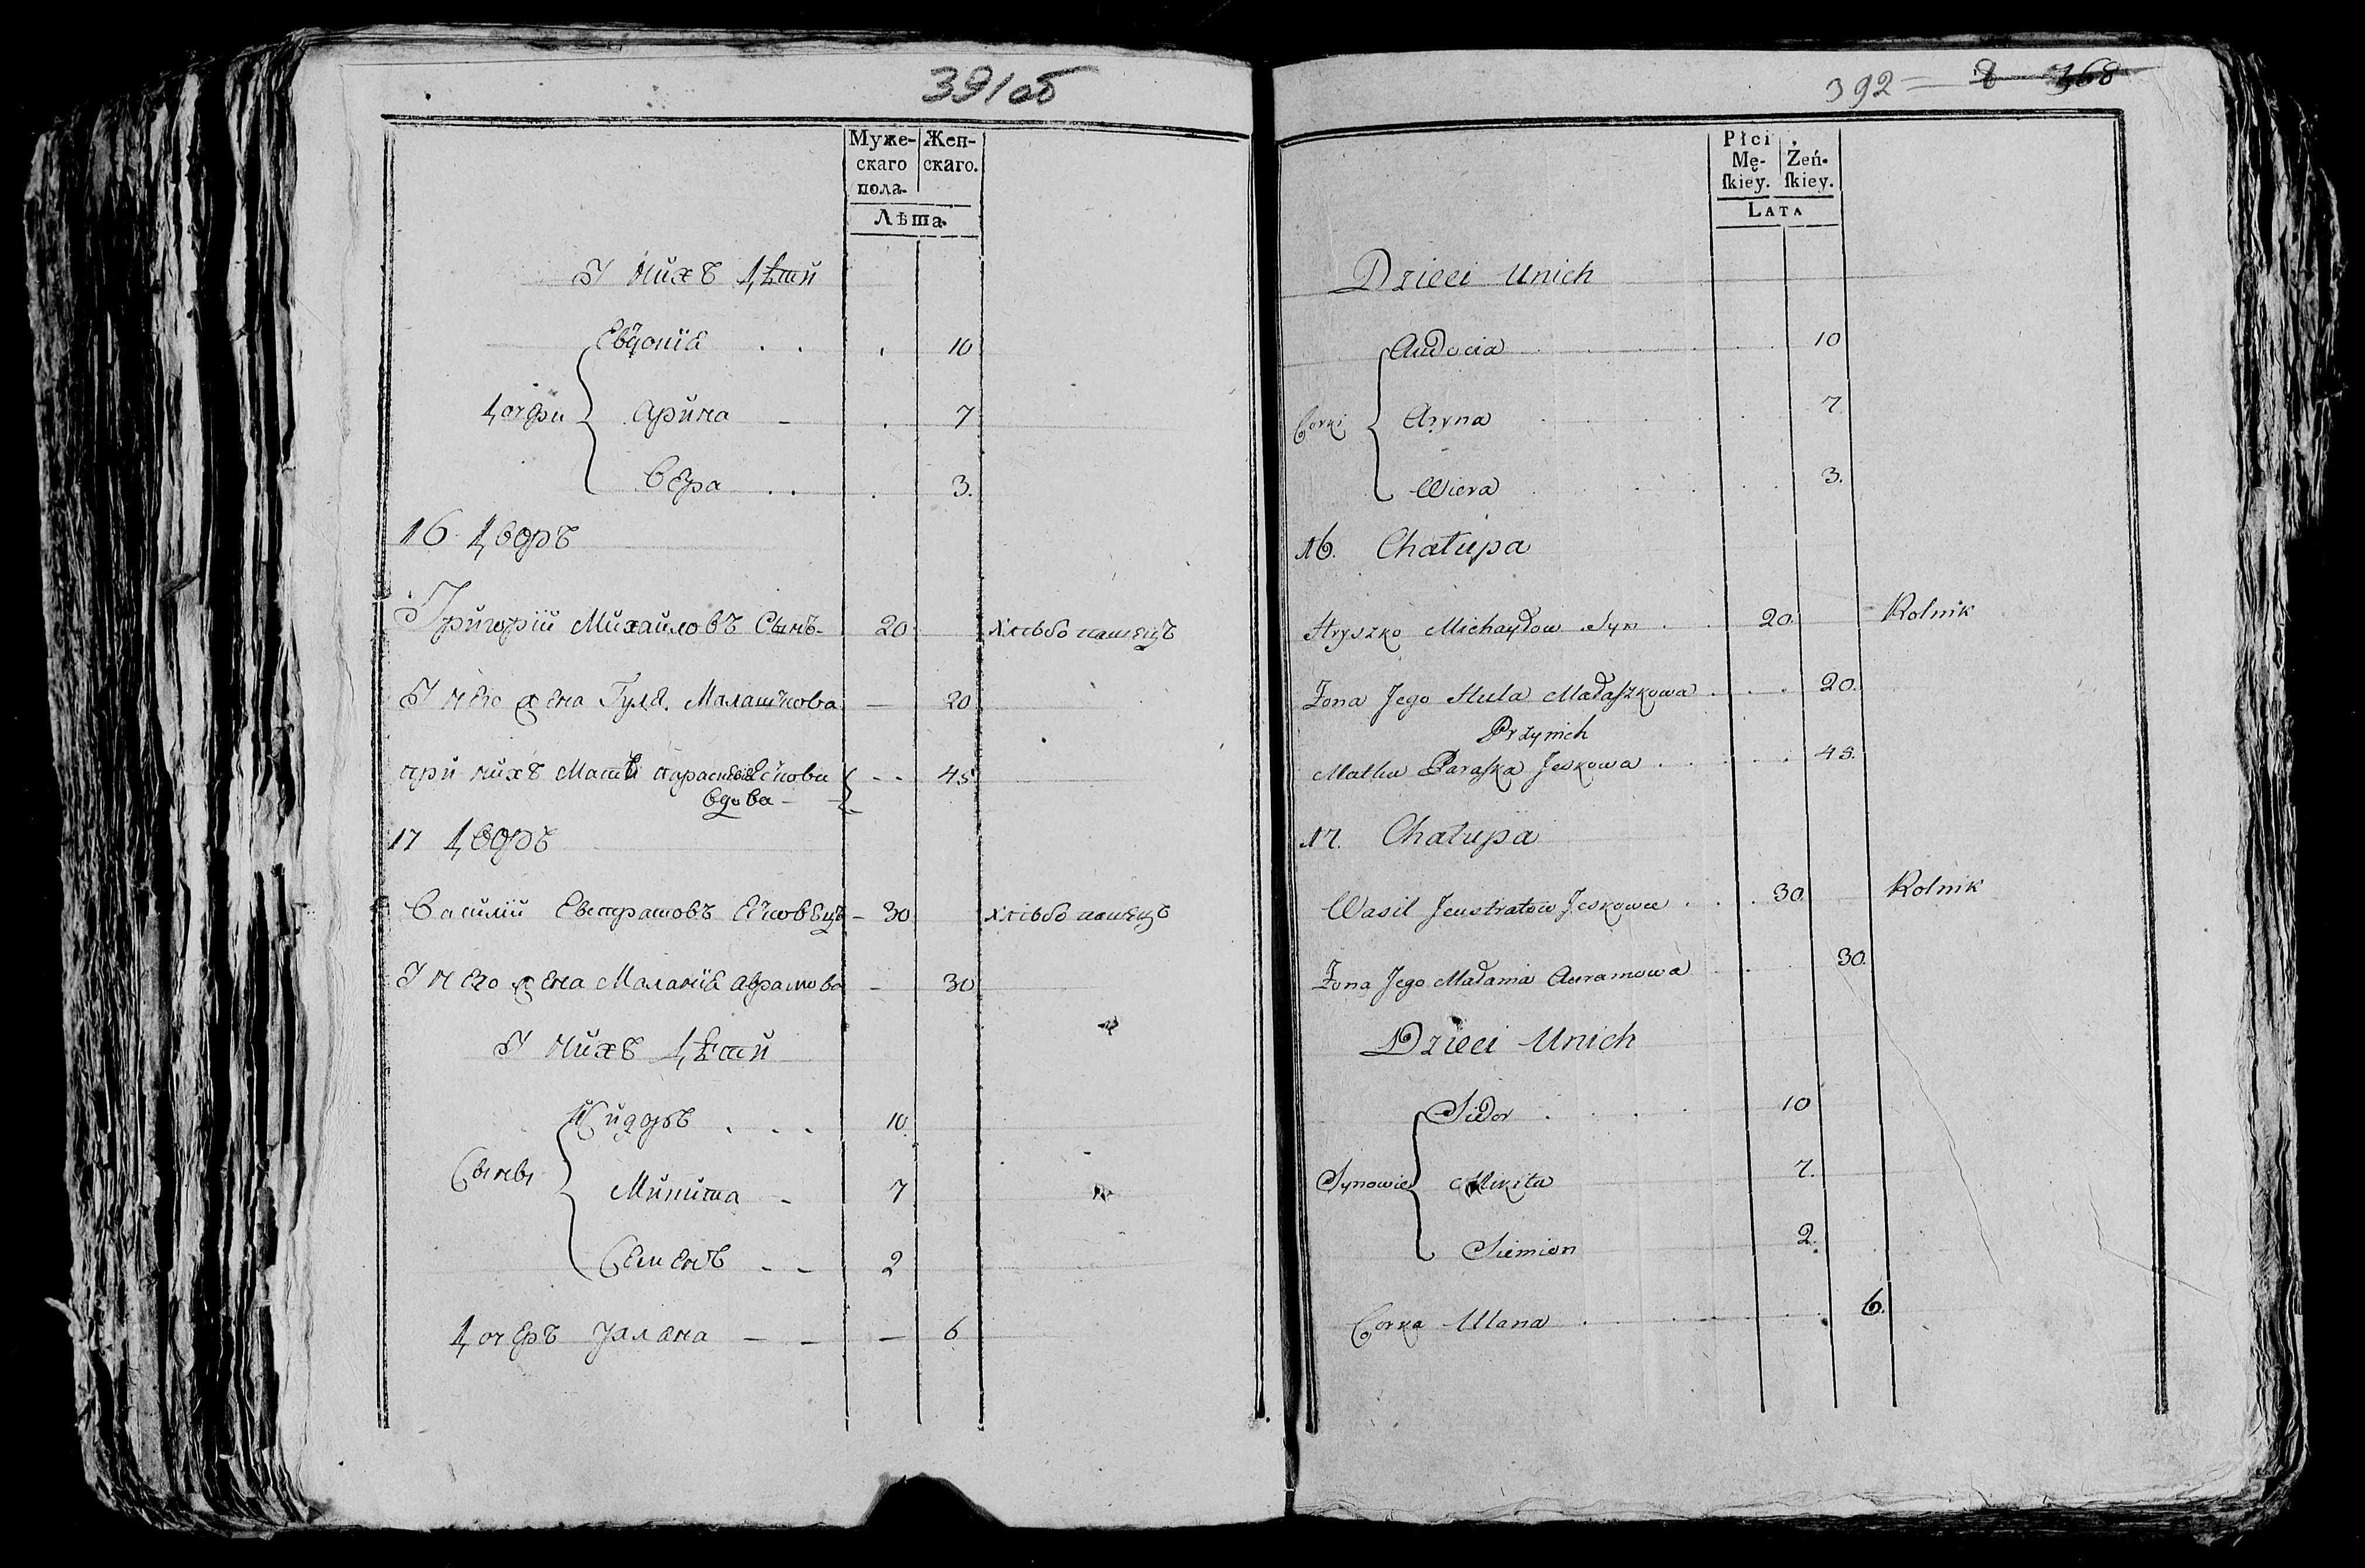 391об
Муже-
скаго
пола.
Жен-
скаго.
Лѣта.
У нихъ дѣти
Евдокія . . . 10
дочери
Арина - . 7
Вера . . . 3.
16 дворъ
Григорій Михайловъ Сынъ - 20 хлѣбопашецъ
У него жена Гуля Малашкова — 20
при нихъ Мать Параскевія Ескова - - 45
вдова -
17 дворъ
Василій Евстратовъ - 30 хлѣбопашецъ
У него жена Маланія Аврамова — 30
У нихъ дѣти
Сидоръ . . . 10.
Сыны
Микита - 7
Семенъ - - 2
дочеръ Уляна — — — 6
392 = 8 368
Płci
Mę-
ſkiey.
Żeń-
ſkiey.
LATA
Dzieci Unich
Audocia . . . . . . 10
Corki
Aryna . . . . . 7.
Wiera . . . . . 3.
16. Chałupa
Hryszko Michayłow Syn . . 20. Rolnik
Żona Jego Hula Małaſzkowa . . . 20.
Przynich
Matka Paraſka Jeskowa . . . . . 45.
17. Chałupa
Wasil Jeustratow Jeskowa . . . 30. Rolnik
Żona Jego Małania Auramowa . . . 30.
Dzieci Unich
Sidor . . . . 10
Synowie
Mikita 7.
Siemion 2.
Corka Ulana . . . . . . . 6.